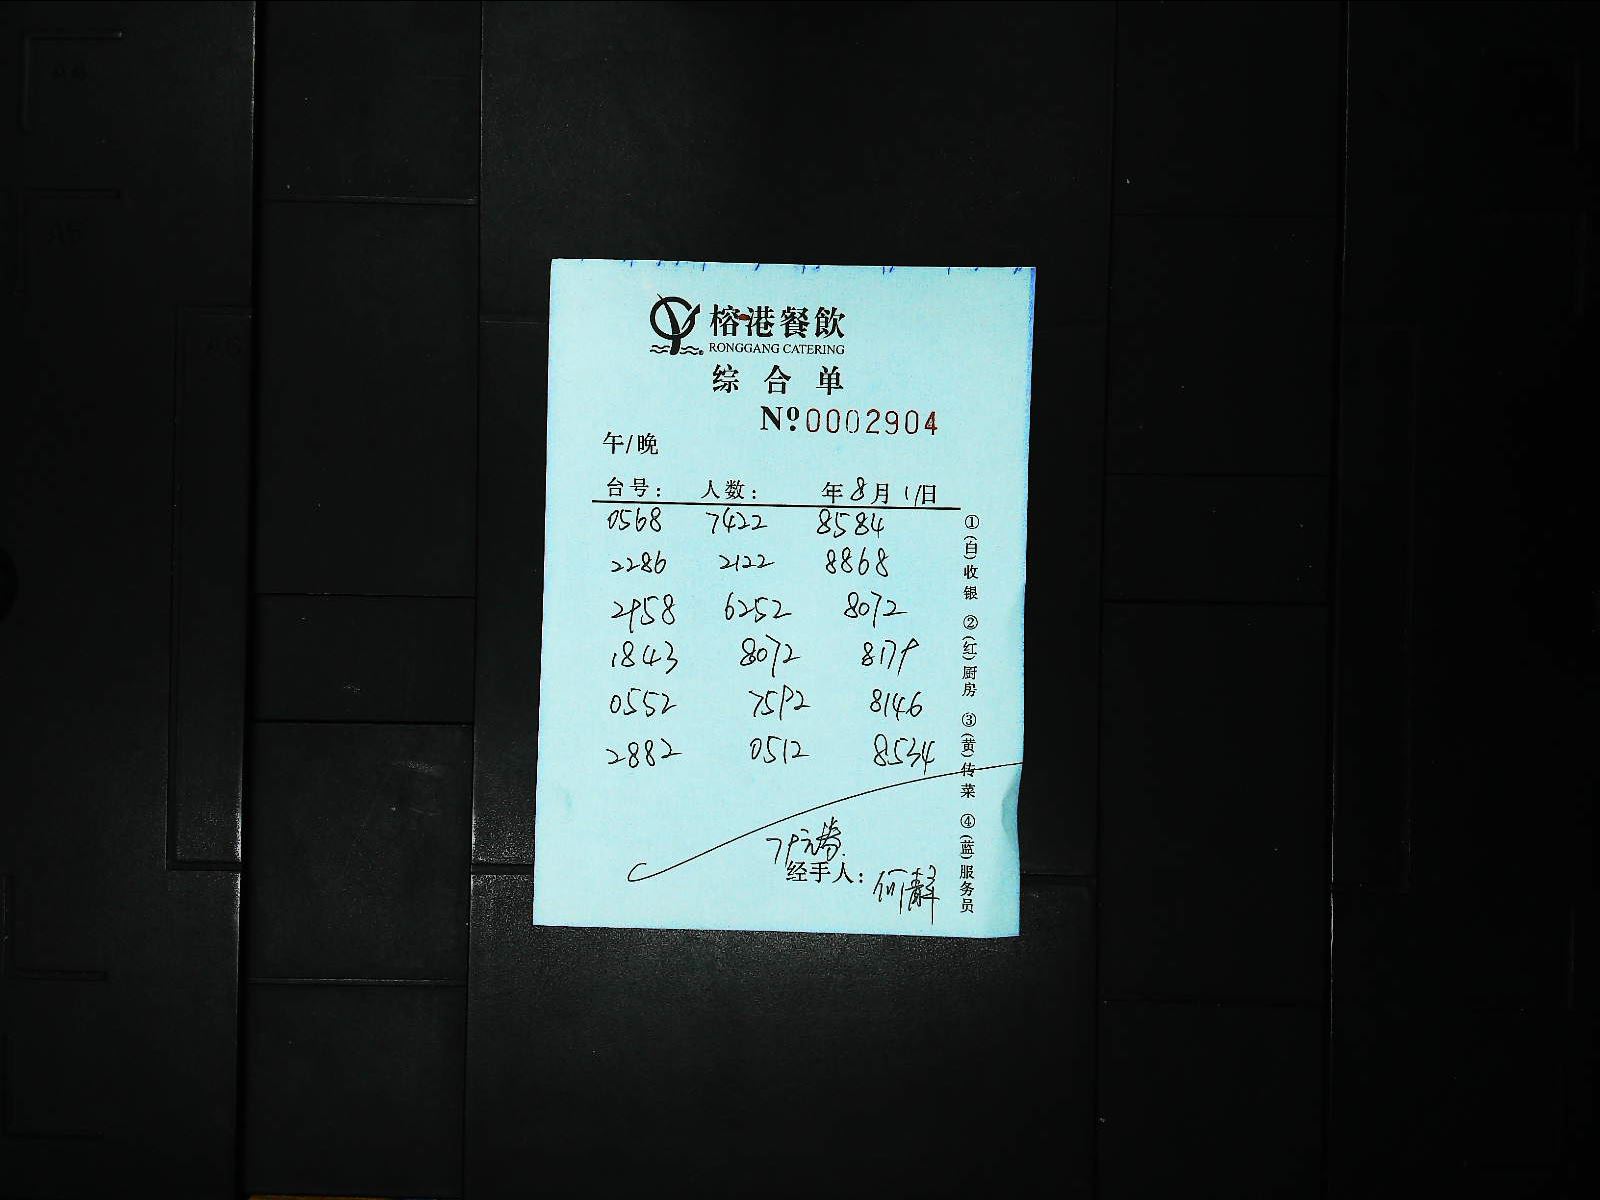 榕港餐飲
RONGGANG CATERING
综合单
Nº0002904
午/晚
台号： 人数： 年8月11日
0568 7422 8584
2286 2122 8868
2958 6252 8072
1843 8072 8179
0552 7592 8146
2882 0512 8534
79元券
经手人：何静
①(白)收银 ②(红)厨房 ③(黄)传菜 ④(蓝)服务员